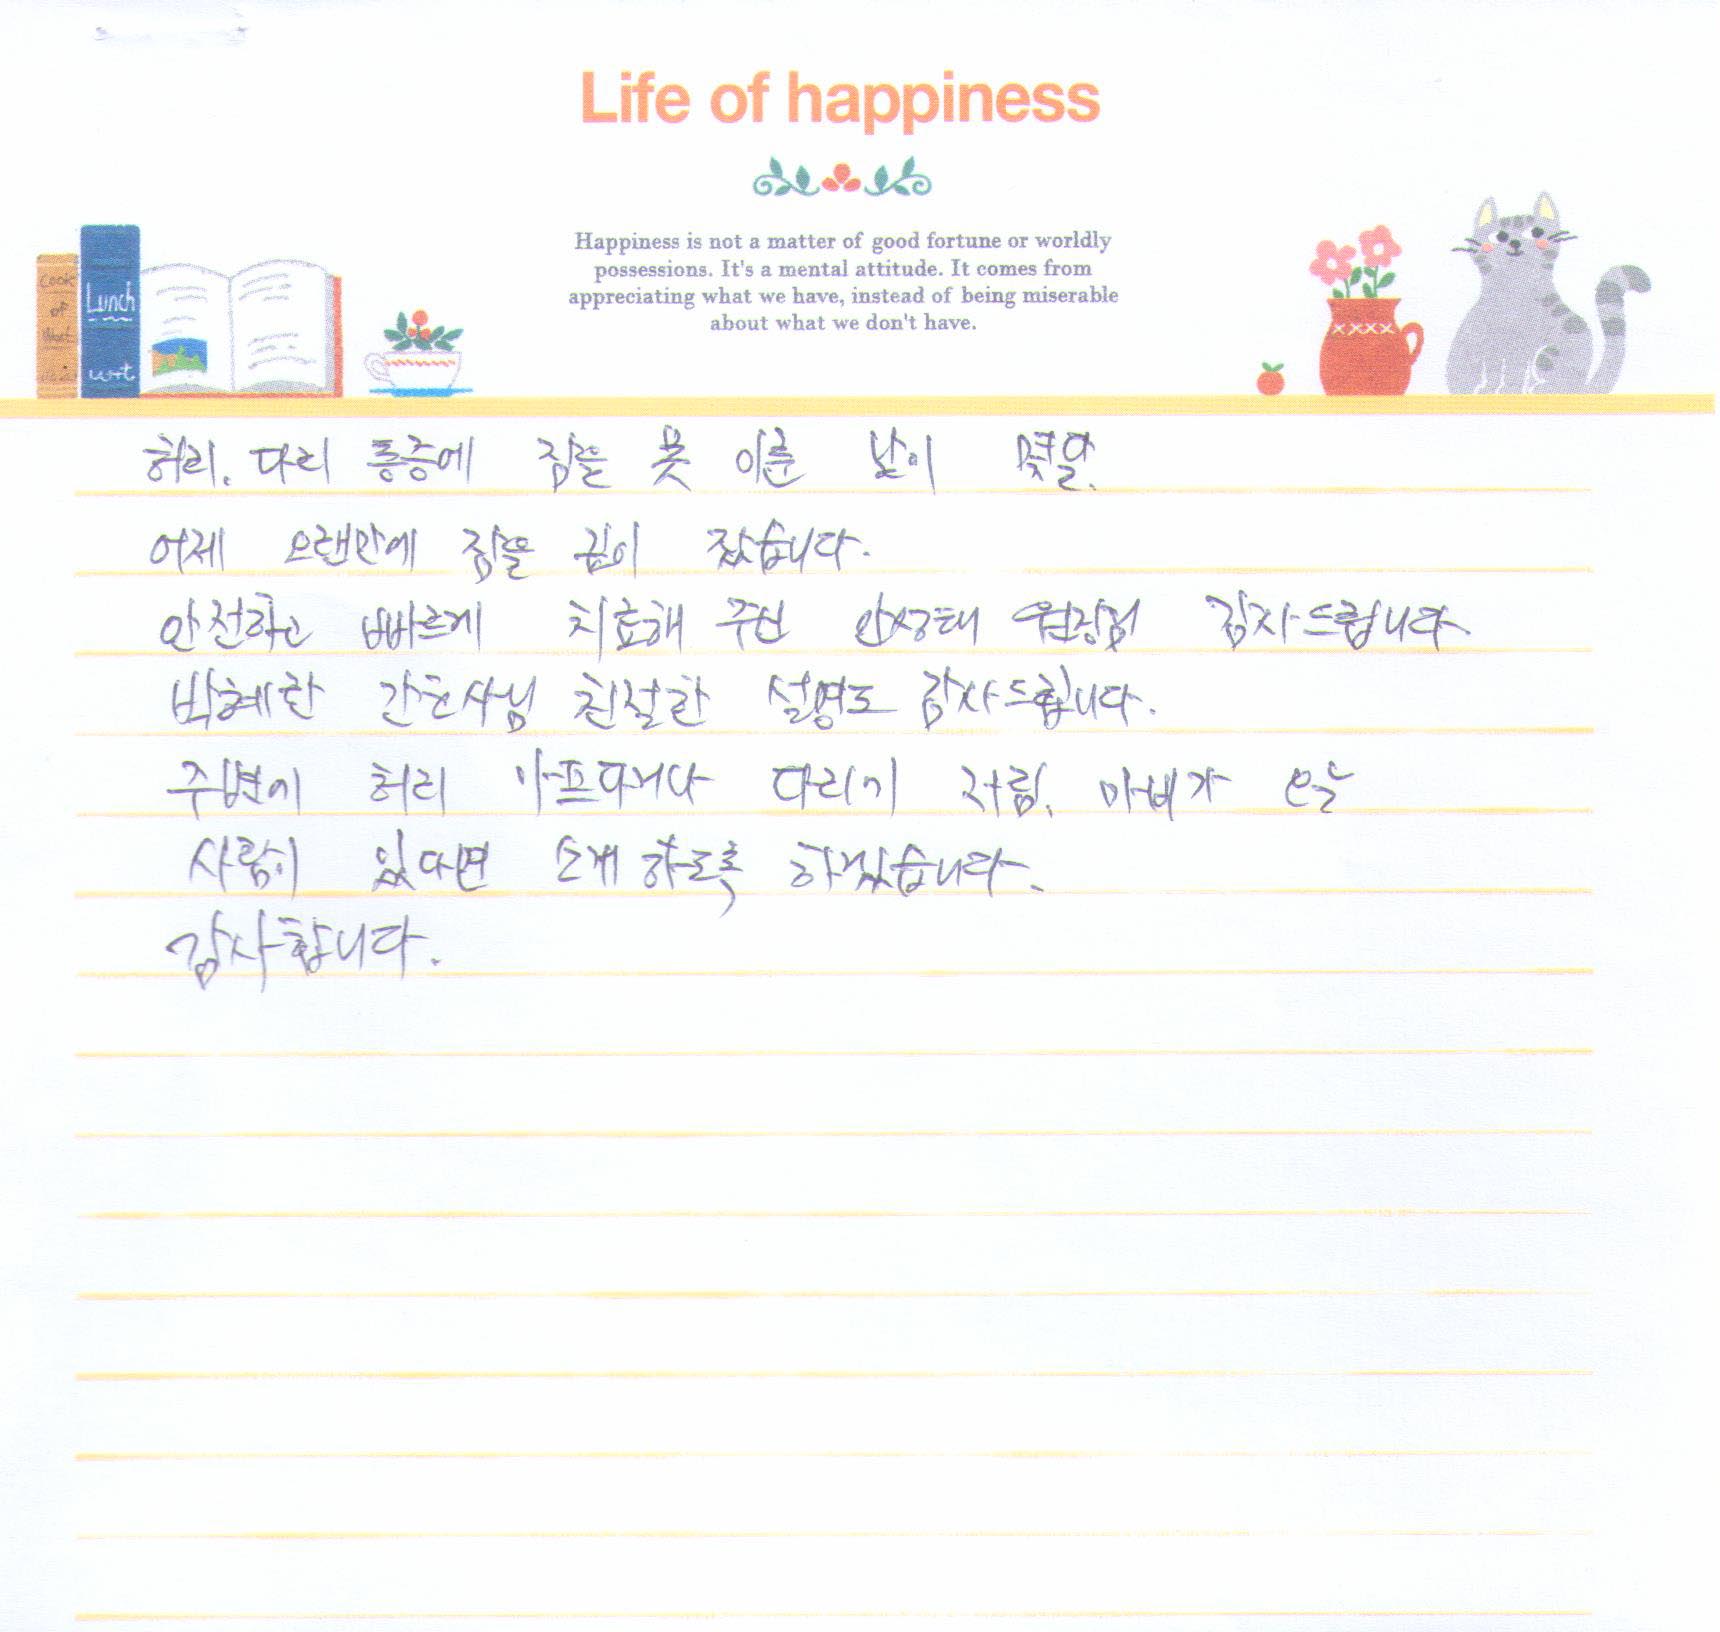 Life of happiness
Happiness is not a matter of good fortune or worldly
possessions. It's a mental attitude. It comes from
appreciating what we have, instead of being miserable
about what we don't have.
Cook
of
Lunch
허리. 다리 통증에 잠을 못 이룬 날이 몇달.
어제 오랜만에 잠을 깊이 잤습니다.
안전하고 빠르게 치료해 주신 안성태 원장님 감사드립니다.
박혜란 간호사님 친절한 설명도 감사드립니다.
주변에 허리 아프다거나 다리가 저림. 마비가 오는
사람이 있다면 소개 하도록 하겠습니다.
감사합니다.